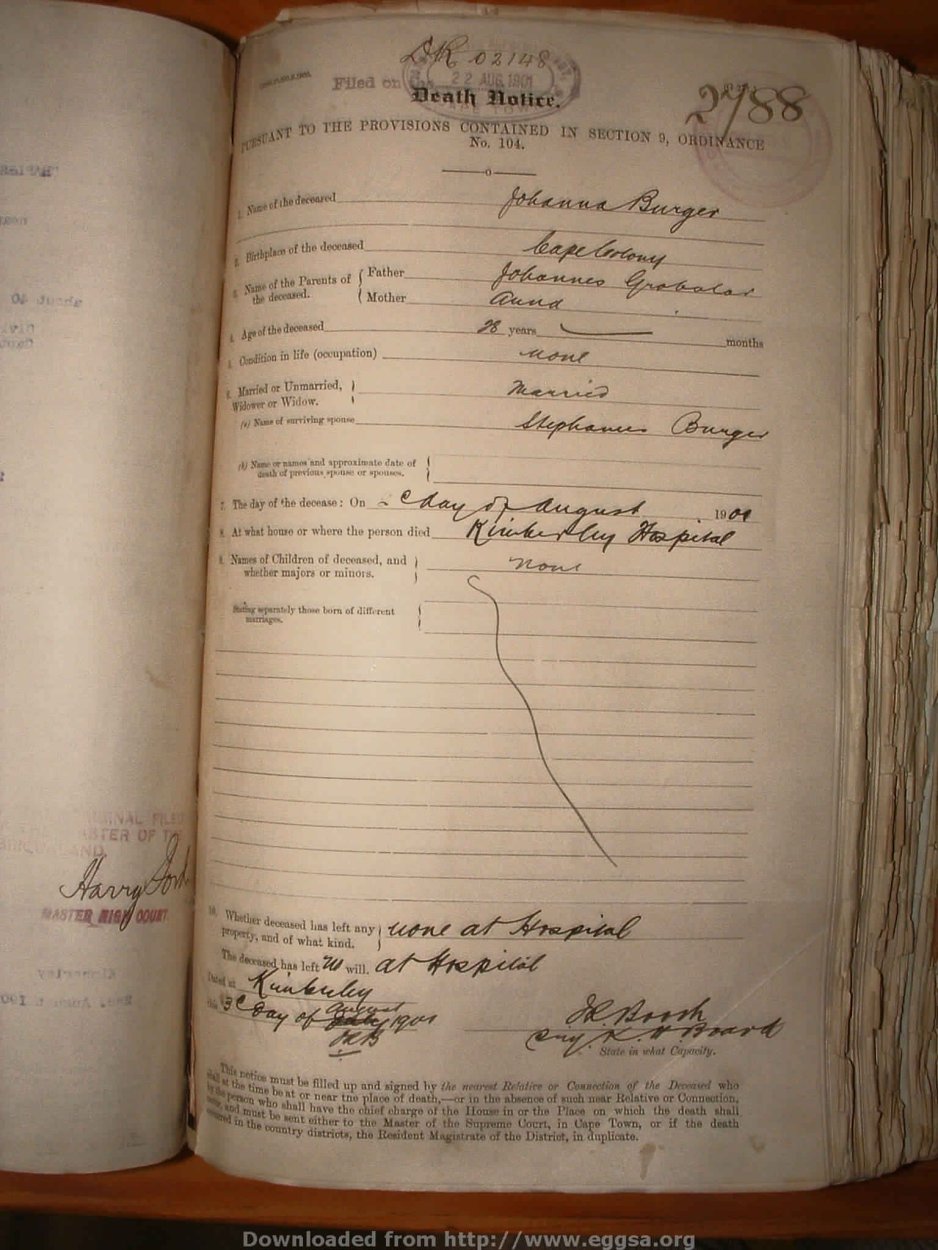 DR 02148
Filed on the
22 AUG 1901
Death Notice.
2788
PURSUANT TO THE PROVISIONS CONTAINED IN SECTION 9, ORDINANCE
No. 104.
1. Name of the deceased Johanna Burger
2. Birthplace of the deceased Cape Colony
3. Name of the Parents of the deceased. Father Johannes Grobolar
Mother Anna
4. Age of the deceased 28 years months
5. Condition in life (occupation) None
6. Married or Unmarried, Widower or Widow. Married
(a) Name of surviving spouse Stephanus Burger
(b) Name or names and approximate date of
death of previous spouse or spouses.
7. The day of the decease: On day of August 1901
8. At what house or where the person died Kimberley Hospital
9. Names of Children of deceased, and
whether majors or minors. None
Stating separately those born of different
marriages.
10. Whether deceased has left any
property, and of what kind. none at Hospital
The deceased has left no will. at Hospital
Dated at Kimberley
this 3 Day of August 1901
State in what Capacity.
This notice must be filled up and signed by the nearest Relative or Connection of the Deceased who
shall at the time be at or near the place of death,—or in the absence of such near Relative or Connection,
by the person who shall have the chief charge of the House in or the Place on which the death shall
occur, and must be sent either to the Master of the Supreme Court, in Cape Town, or if the death
occurred in the country districts, the Resident Magistrate of the District, in duplicate.
ORIGINAL FILED
MASTER OF THE
Harry
MASTER HIGH COURT
Downloaded from http://www.eggsa.org